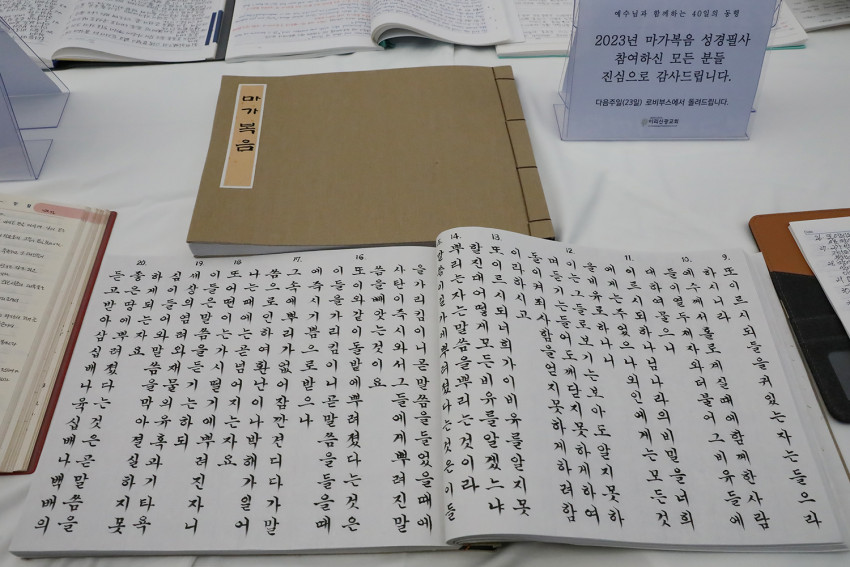 예수님과 함께하는 40일의 동행
2023년 마가복음 성경필사
참여하신 모든 분들
진심으로 감사드립니다.
다음주일(23일) 로비부스에서 돌려드립니다.
이리신광교회
마가복음
9. 또이르시되들을귀있는자는들으라
하시니라
10. 예수께서홀로계실때에함께한사람
들이열두제자와더불어그비유들에
대하여물으니
11. 이르시되하나님나라의비밀을너희
에게는주었으나외인에게는모든것
을비유로하나니
12 이는그들로보기는보아도알지못하
며듣기는들어도깨닫지못하게하여
돌이켜죄사함을얻지못하게하려함
이라하시고
13. 또이르시되너희가이비유를알지못
할진대어떻게모든비유를알겠느냐
14. 뿌리는자는말씀을뿌리는것이라
말씀이길가에뿌려졌다는것은이들
을가리킴이니곧말씀을들었을때에
사탄이즉시와서그들에게뿌려진말
씀을빼앗는것이요
16. 또이와같이돌밭에뿌려졌다는것은
이들을가리킴이니곧말씀을들을때
에즉시기쁨으로받으나
17. 그속에뿌리가없어잠깐견디다가말
씀으로인하여환난이나박해가일어
나는때에는곧넘어지는자요
18. 또어떤이는가시떨기에뿌려진자니
이들은말씀을듣기는하되
19. 세상의염려와재물의유혹과기타욕
심이들어와말씀을막아결실하지못
하게되는자요
20. 좋은땅에뿌려졌다는것은곧말씀을
듣고받아삼십배나육십배나백배의